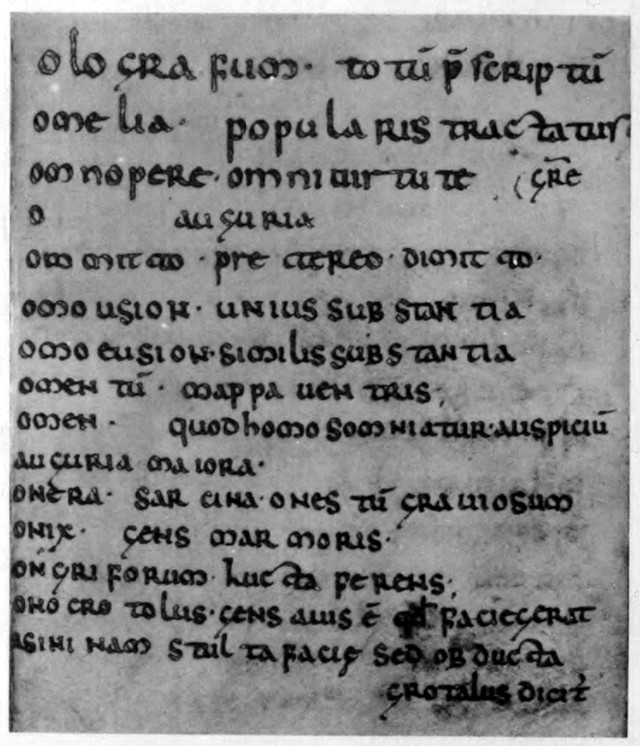 olografum· totū p̄ scriptū
omelia· popularis tractatus
omnopere· omni uirtute (gr̄e
o auguria
ommitto· pre tereo· dimitto·
omousion· unius substantia
omoeusion· similis substantia
omentū· mappa uentris;
omen· quod homo somniatur· auspiciū
auguria maiora·
onera· sarcina· ones tū grauiosum
onix· gens marmoris·
ongriforum· lucta perens;
onocrotolus· gens auis ē qd faciē gerat
asini nam stulta facie sed obducta
grotalus dicit̄